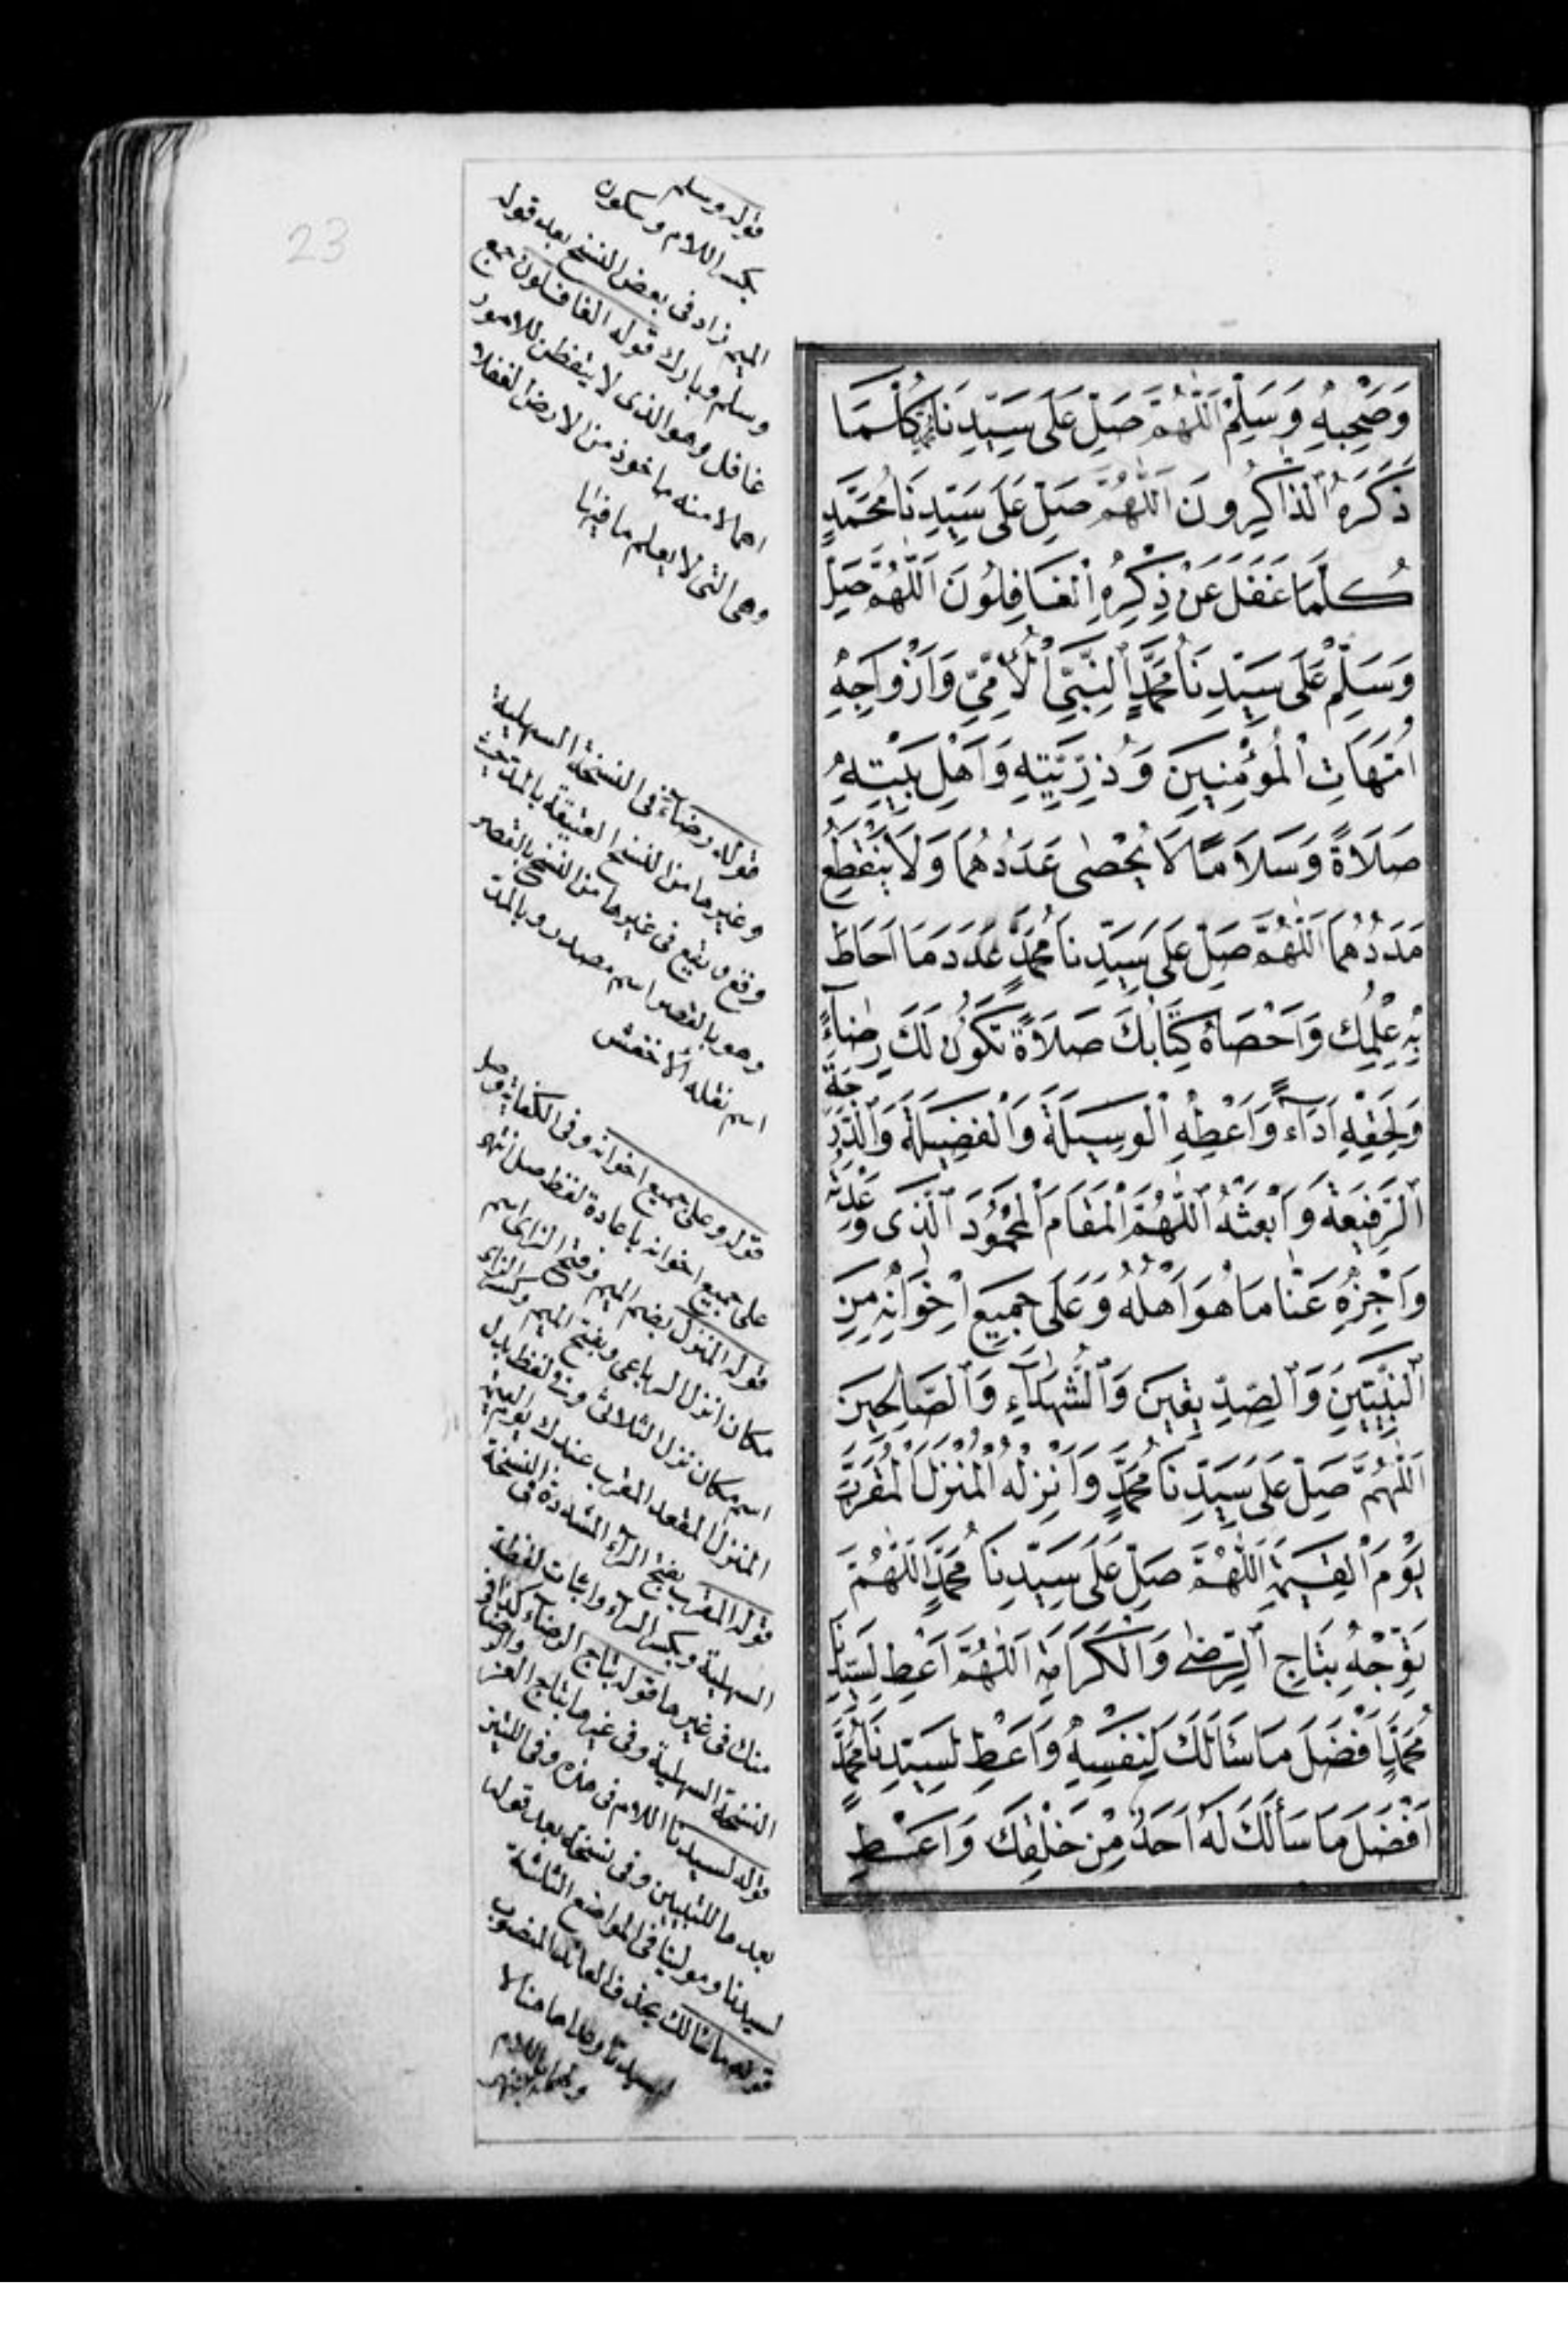 23
وَصَحْبِهِ وَسَلِّمْ اَللّٰهُمَّ صَلِّ عَلَى سَيِّدِنَا مُحَمَّدٍ كُلَّمَا
ذَكَرَهُ ٱلذَّاكِرُونَ اَللّٰهُمَّ صَلِّ عَلَى سَيِّدِنَا مُحَمَّدٍ
كُلَّمَا غَفَلَ عَنْ ذِكْرِهِ ٱلْغَافِلُونَ اَللّٰهُمَّ صَلِّ
وَسَلِّمْ عَلَى سَيِّدِنَا مُحَمَّدٍ ٱلنَّبِيِّ ٱلْأُمِّيِّ وَاَزْوَاجِهِ
اُمَّهَاتِ ٱلْمُؤْمِنِينَ وَذُرِّيَّتِهِ وَاَهْلِ بَيْتِهِ
صَلَاةً وَسَلَامًا لَا يُحْصٰى عَدَدُهُمَا وَلَا يَنْقَطِعُ
مَدَدُهُمَا اَللّٰهُمَّ صَلِّ عَلَى سَيِّدِنَا مُحَمَّدٍ عَدَدَ مَا اَحَاطَ
بِهِ عِلْمُكَ وَاَحْصَاهُ كِتَابُكَ صَلَاةً تَكُونُ لَكَ رِضَآءً
وَلِحَقِّهِ اَدَآءً وَاَعْطِهِ ٱلْوَسِيلَةَ وَٱلْفَضِيلَةَ وَٱلدَّرَجَةَ
ٱلرَّفِيعَةَ وَابْعَثْهُ ٱللّٰهُمَّ ٱلْمَقَامَ ٱلْمَحْمُودَ ٱلَّذِى وَعَدْتَهُ
وَاجْزِهِ عَنَّا مَا هُوَ اَهْلُهُ وَعَلَى جَمِيعِ اِخْوَانِهِ مِنَ
ٱلنَّبِيِّينَ وَٱلصِّدِّيقِينَ وَٱلشُّهَدَآءِ وَٱلصَّالِحِينَ
اَللّٰهُمَّ صَلِّ عَلَى سَيِّدِنَا مُحَمَّدٍ وَاَنْزِلْهُ ٱلْمُنْزَلَ ٱلْمُقَرَّبَ
يَوْمَ ٱلْقِيٰمَةِ اَللّٰهُمَّ صَلِّ عَلَى سَيِّدِنَا مُحَمَّدٍ اَللّٰهُمَّ
تَوِّجْهُ بِتَاجِ ٱلرِّضٰى وَٱلْكَرَامَةِ اَللّٰهُمَّ اَعْطِ لِسَيِّدِنَا
مُحَمَّدٍ اَفْضَلَ مَا سَئَالَكَ لِنَفْسِهِ وَاَعْطِ لِسَيِّدِنَا مُحَمَّدٍ
اَفْضَلَ مَا سَأَلَكَ لَهُ اَحَدٌ مِنْ خَلْقِكَ وَاَعْطِ
قوله وسلم
بكسر اللام وسكون
الميم زاد فى بعض النسخ بعد قوله
وسلم وبارك قوله الغافلون جمع
غافل وهو الذى لا يتفطن للامور
اهمالا منه ماخوذ من الارض الغفلاء
وهى التى لا يعلم ما فيها
قوله رضآء فى النسخة السهلية
وغيرها من النسخ العتيقة بالمد حيث
وقع ويقع فى غيرها من النسخ بالقصر
وهو بالقصر اسم مصدر وبالمد
اسم نقله الاخفش
قوله وعلى جميع اخوانه وفى الكفاية وصل
على جميع اخوانه باعادة لفظ صل انتهى
قوله المنزل بضم الميم وفتح الزاى اسم
مكان انزل الرباعى وبفتح الميم وكسر الزاى
اسم مكان نزل الثلاثى ولفظ بدل
المنزل المقعد المقرب عندك يوم القيمة
قوله المقرب بفتح الرآء المشددة فى النسخة
السهلية وبكسر الرآء واثبات لفظة
منك فى غيرها قوله بتاج الرضاء كذا فى
النسخة السهلية وفى غيرها بتاج العز والرضا
قوله لسيدنا اللام فى هذه وفى اللتين
بعدها للتبيين وفى نسخة بعد قوله
لسيدنا ومولينا فى المواضع الثلثة
قوله ما سألك بحذف العائد المنصوب